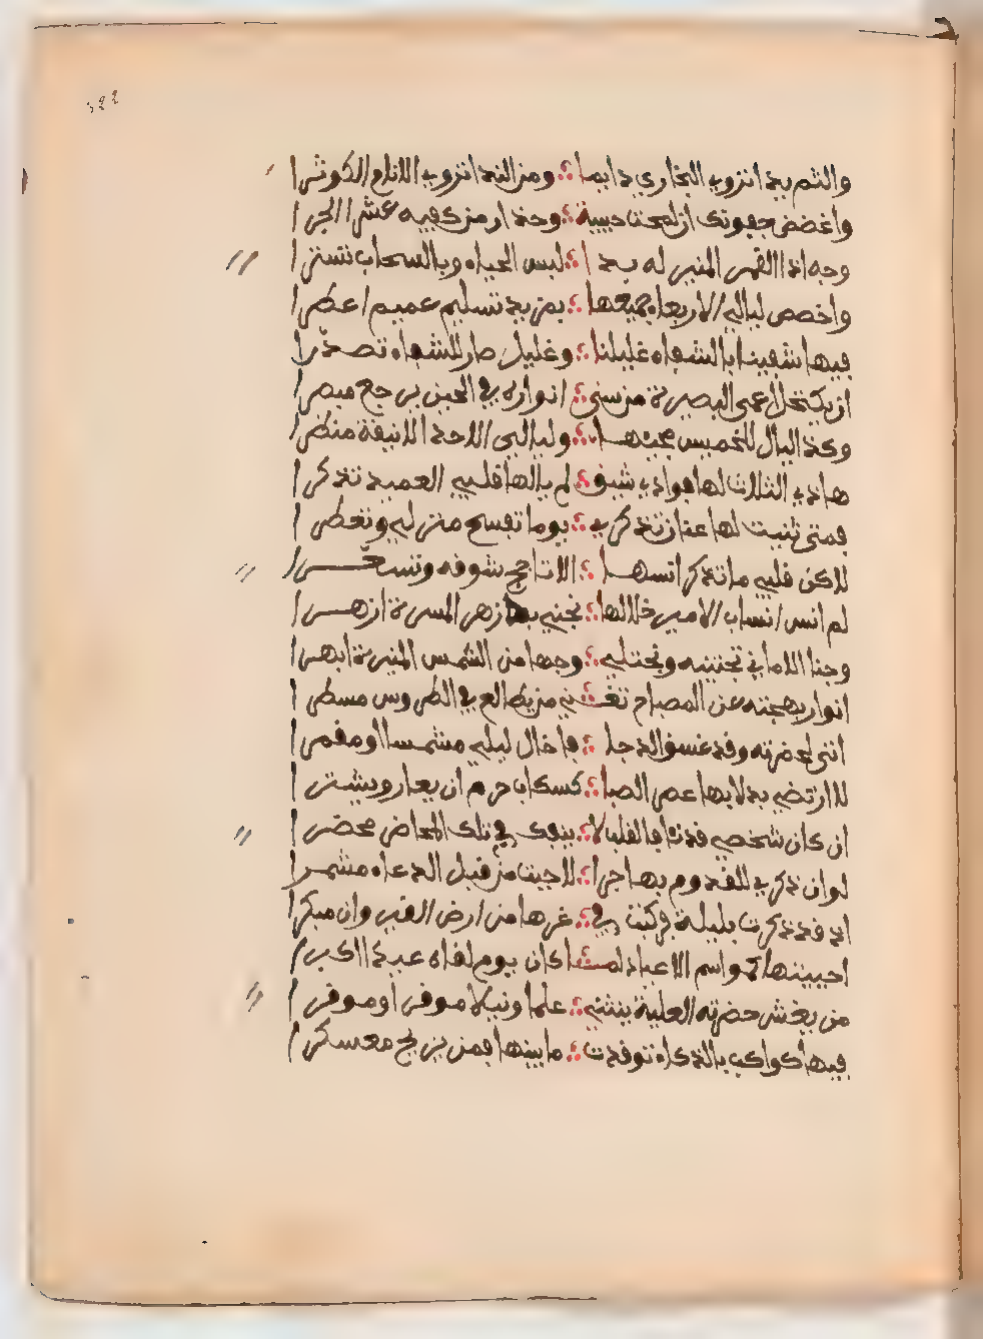 والثم يدا تروي البخاري دايما ؛ ومن الندا تروي الانام الكوثرا
واغضض جفونك ان لمحت حبيبه ؛ وحذار من كفيه عشرا ابحرا
وجه اذا القمر المنير له بدا ؛ لبس الحياء وبالسحاب تسترا
واخصص ليالي الاربعاء جميعها ؛ بمزيد تسليم عميم اعطرا
فيها شفينا بالشفاء غليلنا ؛ وغليل صار للشفاء تصدرا
ان يكتحل اعمى البصيرة من سنى ؛ انواره في الحين يرجع مبصرا
وكذا ليال للخميس بحبها ؛ وليالي الاحد الانيقة منظرا
هاذي الثلاث لها فوادي شيق ؛ لم يالها قلبي العميد تذكرا
فمتى ثنيت لها عنان تذكري ؛ يوما تفسح منزلي وتعطرا
لاكن قلبي ما تذكر انسها ؛ الا تاجج شوقه وتسعرا
لم انس انساب الامير خلالها ؛ نجني بها زهر المسرة ازهرا
وجنا الاماني نجتنيه ونجتلي ؛ وجها من الشمس المنيرة ابهرا
انوار بهجته عن المصباح تغنيني من يطالع في الطروس مسطرا
اتى لحضرته وقد غسق الدجا ؛ فاخال ليلي مشمسا او مقمرا
لا ارتضي بدلا بها عصر الصبا ؛ كسكاب حرم ان يعار ويشترى
ان كان شخصي قد نا فالقلب لا ؛ ينفك في تلك المحاضر محضرا
لو ان ذكري للقدوم بها جرا ؛ لاجيت من قبل الدعاء مشمرا
اذ قد ذكرت بليلة في كنت في ؛ غرها من ارض الغرب وان مبكرا
احييتها كمواسم الاعياد لما كان يوم لقاه عيدا اكبرا
من يغش حضرته العلية ينثني ؛ علما ونبلا موقرا او موفرا
فيها كواكب بالذكاء توقدت ؛ ما بينها قمن يرى معسكرا